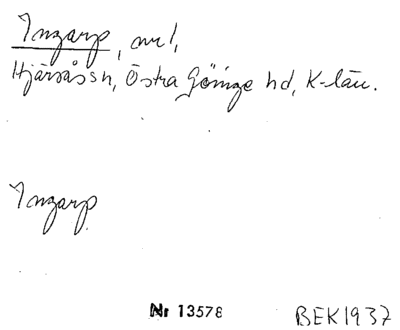 Ingarp, nr 1,
Hjärsås sn, Östra Göinge hd, K-län.
Ingarp
Nr 13578 BEK 1937